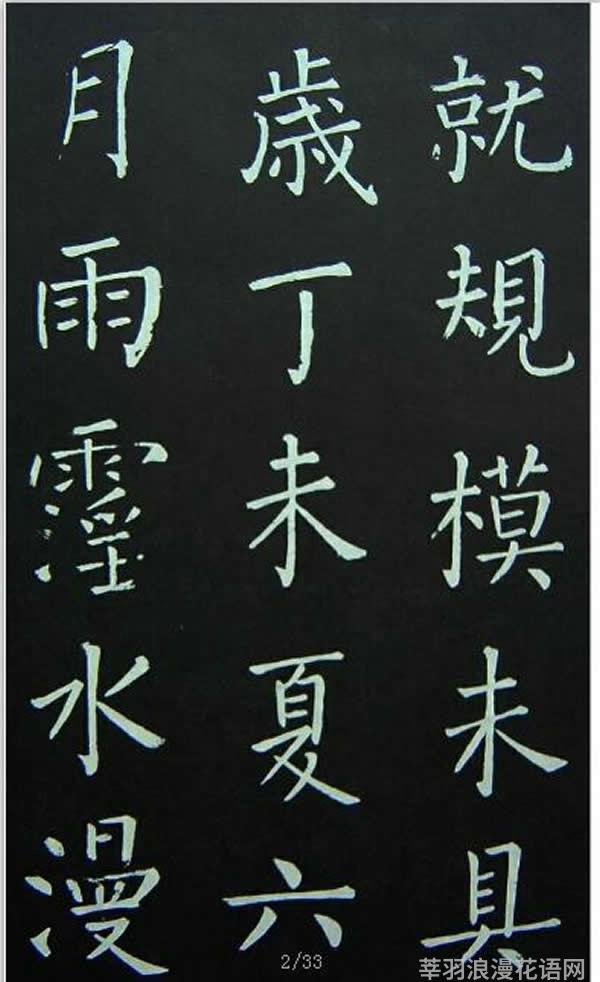 就規模未具
歲丁未夏六
月雨霪水漫
2/33
莘羽浪漫花语网